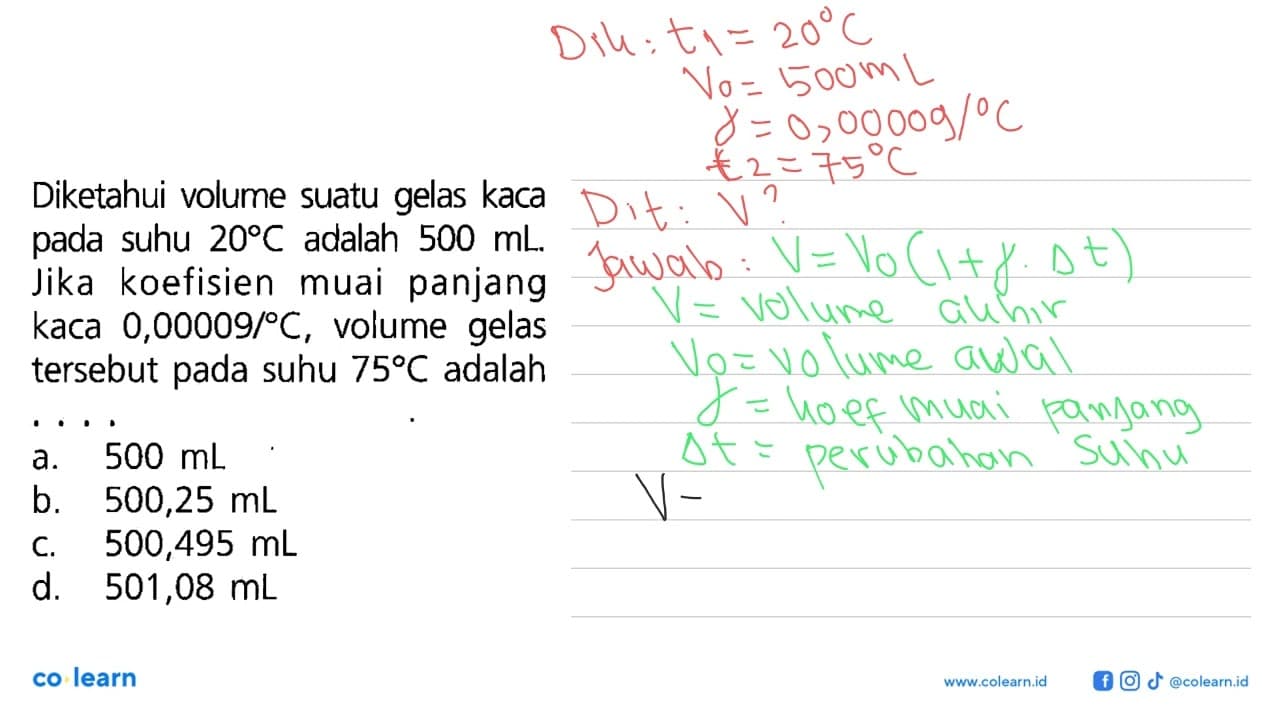 Diketahui volume suatu gelas kaca
pada suhu 20°C adalah 500 mL.
Jika koefisien muai panjang
kaca 0,00009/°C, volume gelas
tersebut pada suhu 75°C adalah
. . . .
a. 500 mL
b. 500,25 mL
c. 500,495 mL
d. 501,08 mL
Dik: t1 = 20°C
Vo = 500mL
γ = 0,00009/°C
t2 = 75°C
Dit: V?
Jawab: V = Vo(1+γ.Δt)
V = volume akhir
Vo = volume awal
γ = koef muai panjang
Δt = perubahan suhu
V -
co learn
www.colearn.id
@colearn.id